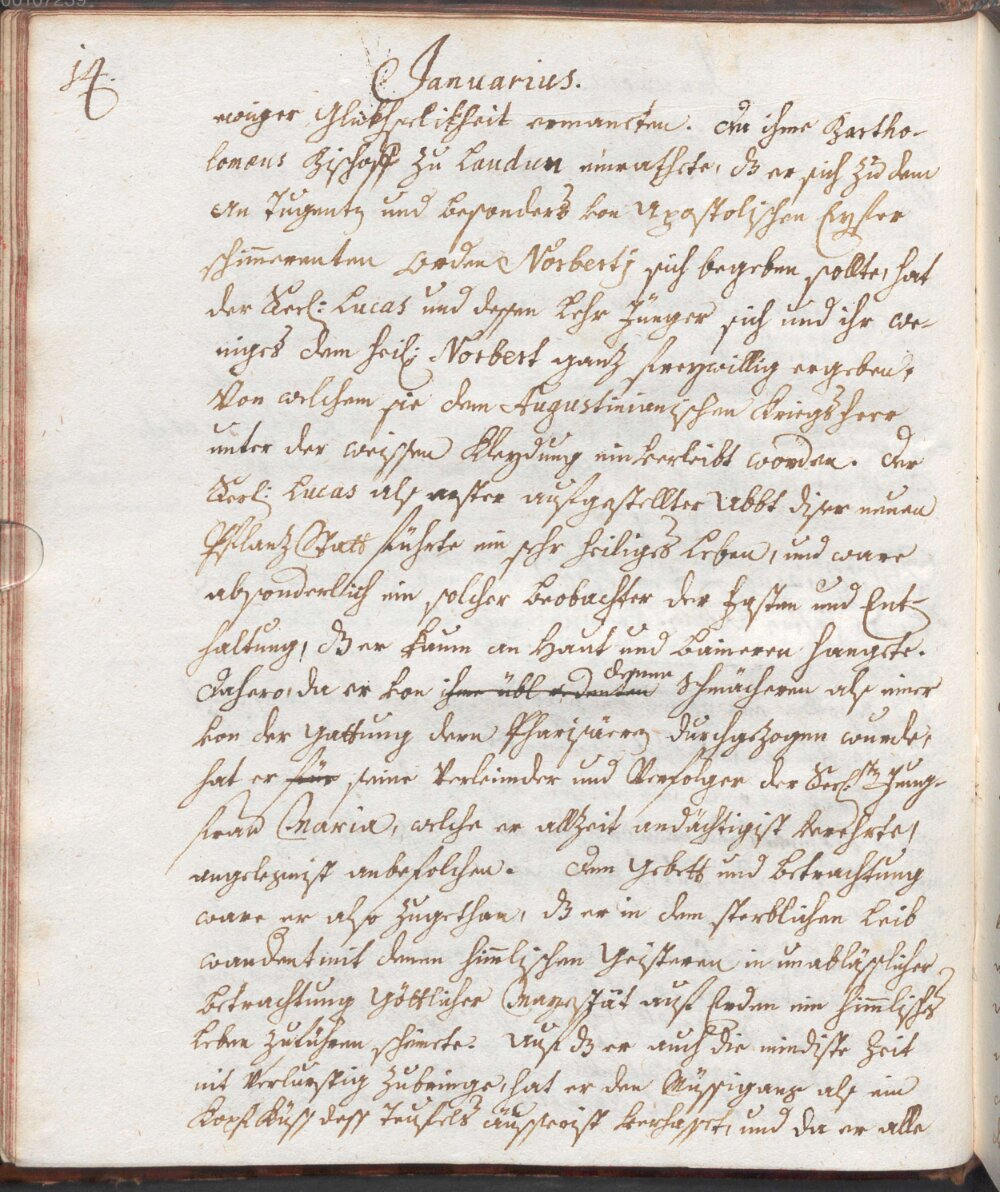 00107259
14.
Januarius.
ewiger Glükhseelikheit ermancten. Da ihme Bartho-
lomæus Bischoff zu Laudun einrathete, dz er sich zu dem
An Tugentz und besonders von Apostolischen Eyfer
schimmerenten Orden Norbertj sich begeben sollte, hat
der Seel: Lucas und dessen Lehr Jünger sich und ihr we-
niges dem heil: Norbert ganz freywillig ergeben,
Von welchem sie dem Augustinianischen Kriegsheer
unter der weissen Kleydung einverleibt worden. Der
Seel: Lucas als erster aufgestellter Abbt diser neuen
Pflantz Statt führte ein sehr heiliges Leben, und ware
absonderlich ein solcher beobachter der Fasten und Ent-
haltung, dz er kaum an Haut und baineren hangete.
Dahero, da er von ihme übl redenten denne Schmächeren als einer
von der Gattung dern Pharisäern durchgezogen wurde,
hat er für seine Verleimder und Verfolger der Seel:stn Jung-
frau Maria, welche er allzeit andächtigist verehrte,
angelegnist anbefolchen. Dem Gebett und betrachtung
ware er also zugethan, dz er in dem sterblichen Leib
wandent mit denen himmlischen Geisteren in unablässlicher
betrachtung Göttlicher Mayestät auf Erden ein himmlisches
Leben zuführen scheinete. Auf dz er auch die mindiste Zeit
nit verlurstig zubringe, hat er den Müssigang als ein
Kopf Küss dess Teufels äusserist verhasset, und da er alle